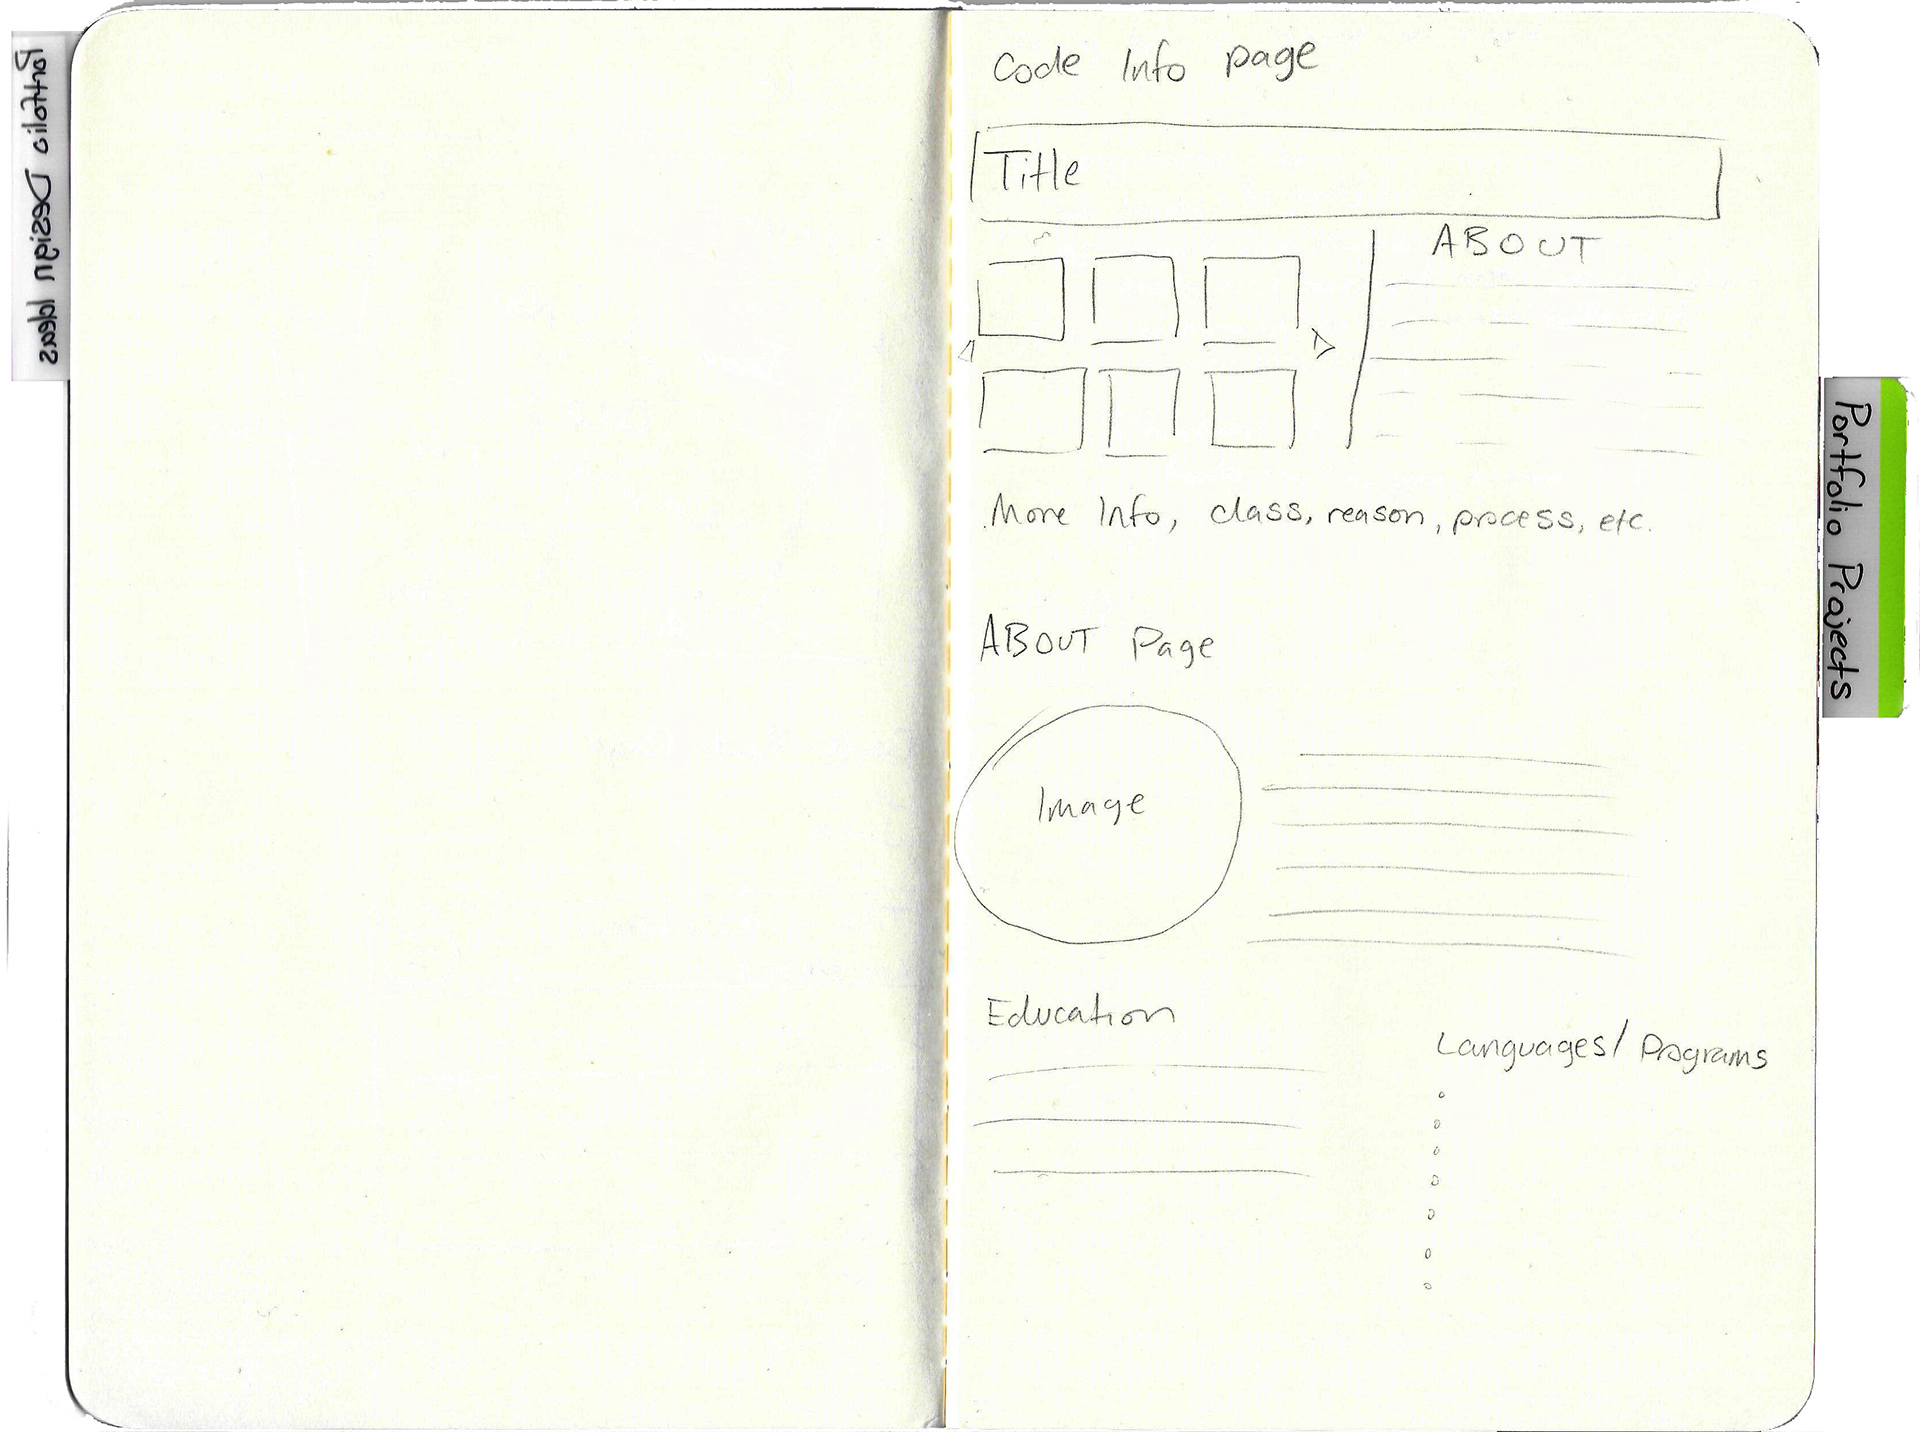 Portfolio Design Ideas
Code Info page
Title
ABOUT
More Info, class, reason, process, etc.
ABOUT Page
Image
Education
Languages/Programs
Portfolio Projects